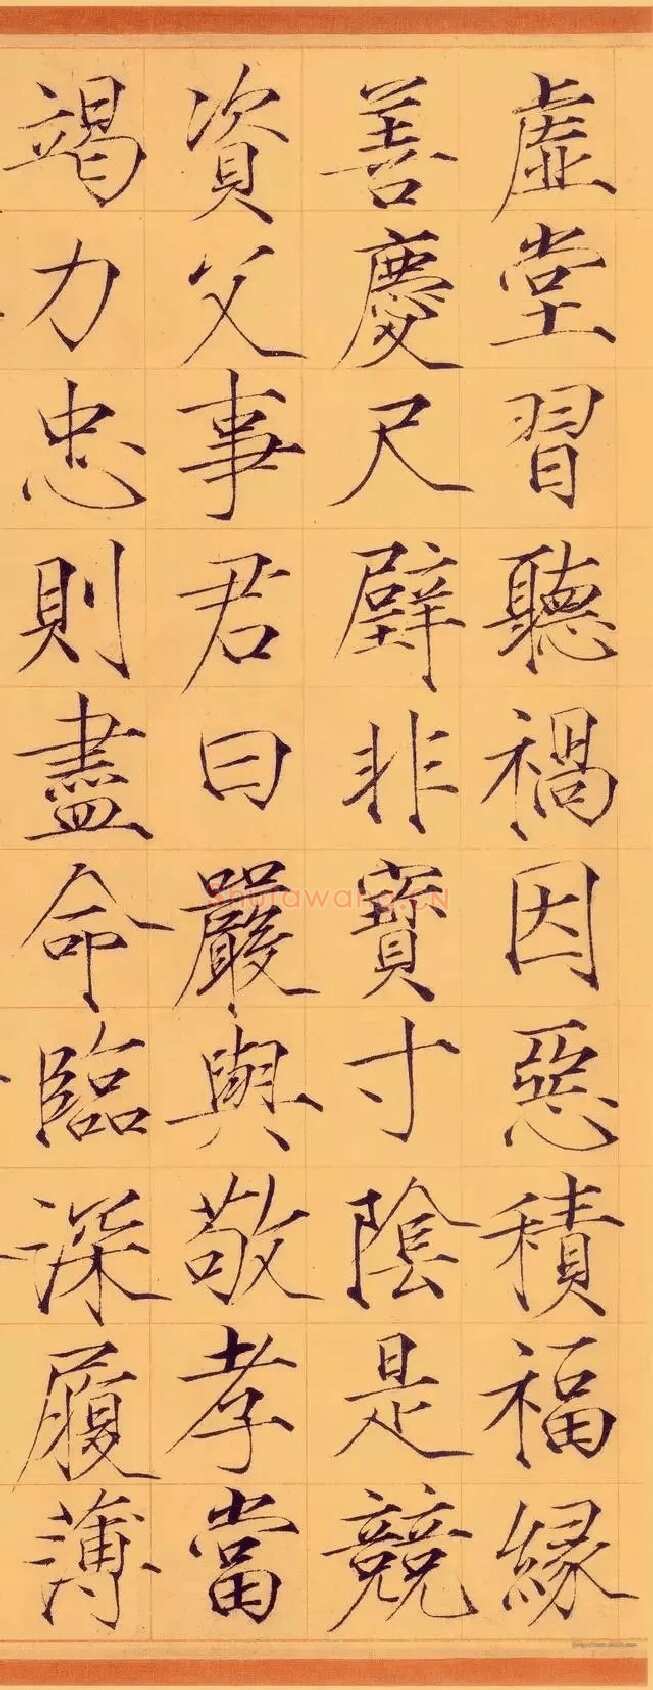 虛堂習聽禍因惡積福緣
善慶尺璧非寶寸陰是競
資父事君曰嚴與敬孝當
竭力忠則盡命臨深履薄
shufawang.CN